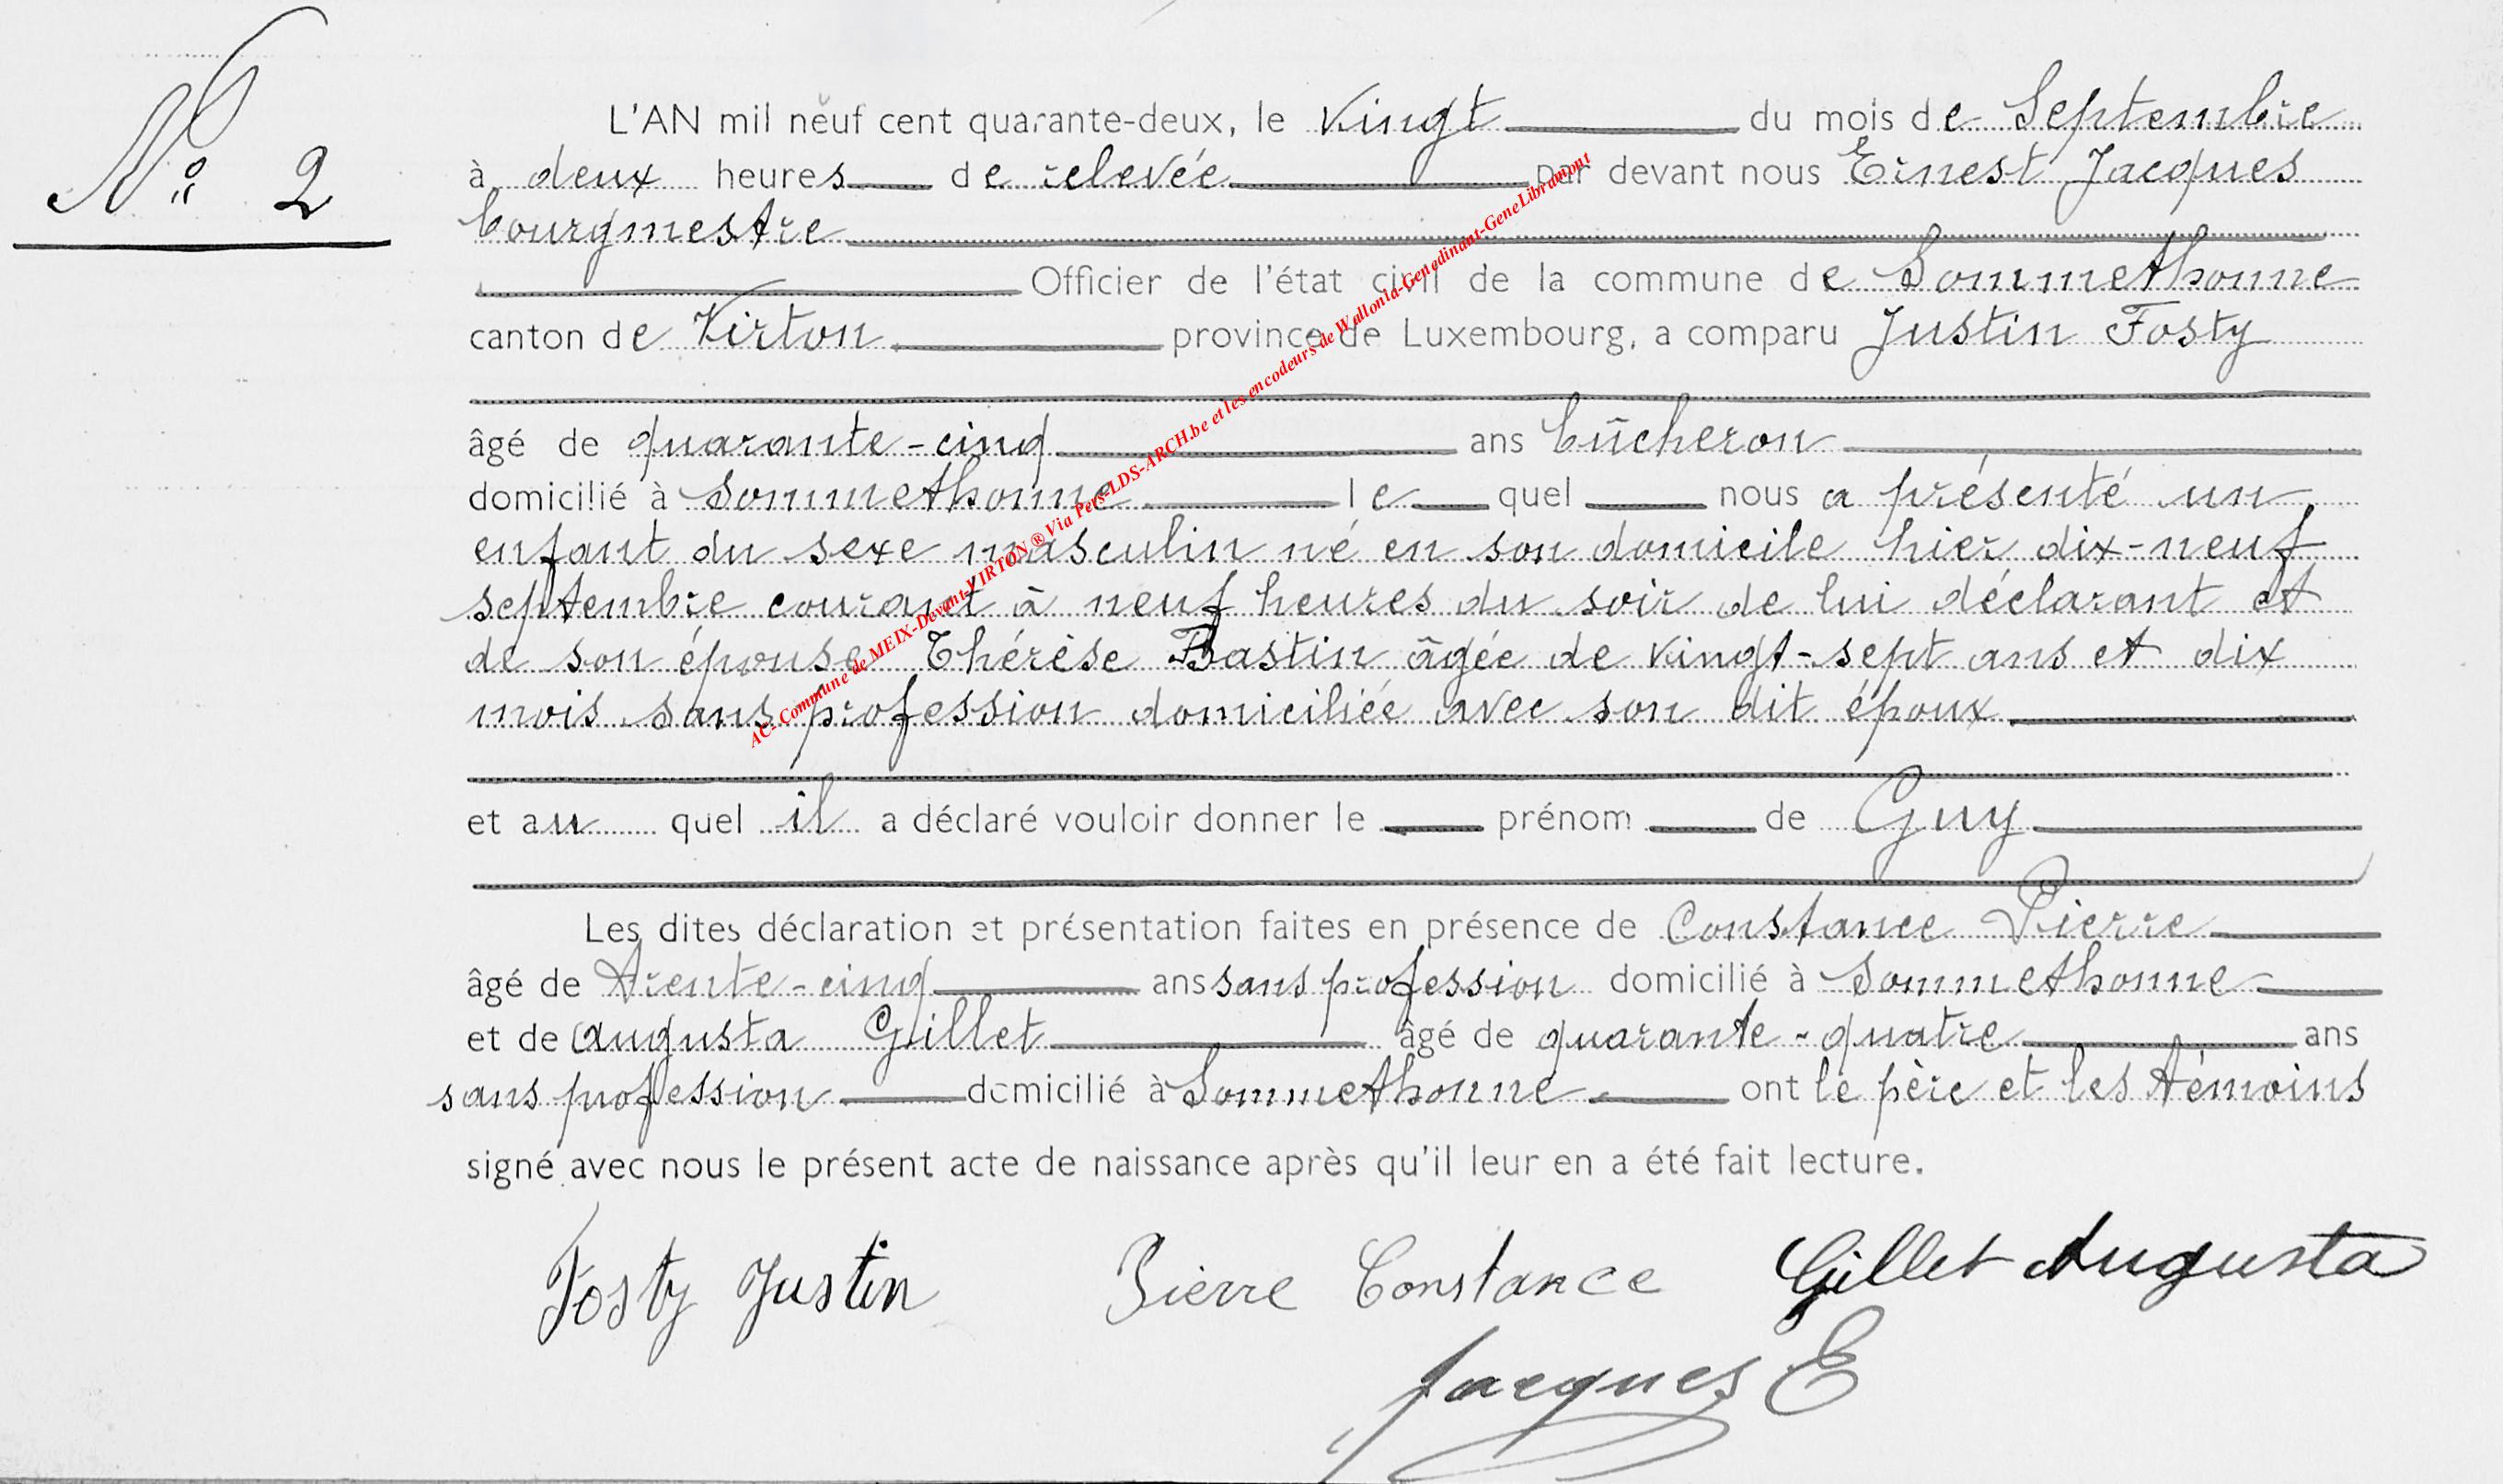 Nº 2
L'AN mil neuf cent quarante-deux, le vingt du mois de Septembre
à deux heures de relevée par devant nous Ernest Jacques
bourgmestre
Officier de l'état civil de la commune de Sommethonne
canton de Virton province de Luxembourg, a comparu Justin Fosty
âgé de quarante-cinq ans bûcheron
domicilié à Sommethonne le quel nous a présenté un
enfant du sexe masculin né en son domicile hier dix-neuf
septembre courant à neuf heures du soir de lui déclarant et
de son épouse Thérèse Bastin âgée de vingt-sept ans et dix
mois sans profession domiciliée avec son dit époux
et au quel il a déclaré vouloir donner le prénom de Guy
Les dites déclaration et présentation faites en présence de Constance Pierre
âgé de trente-cinq ans sans profession domicilié à Sommethonne
et de Augusta Gillet âgé de quarante-quatre ans
sans profession domicilié à Sommethonne ont le père et les témoins
signé avec nous le présent acte de naissance après qu'il leur en a été fait lecture.
Fosty Justin Pierre Constance Gillet Augusta
Jacques E
AC- Commune de MEIX-Devant-VIRTON ® Via Pers-LDS-ARCH.be et les encodeurs de Wallonia-Genedinant-GeneLibramont